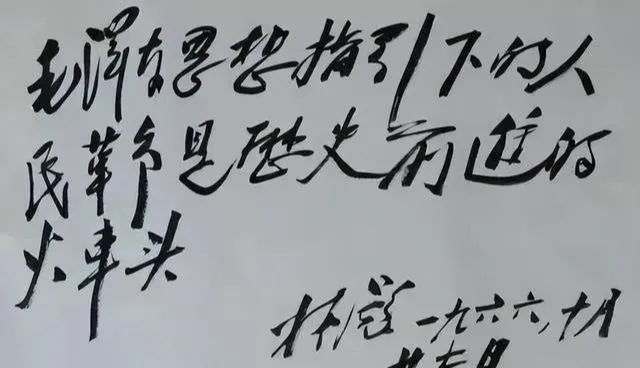 毛澤东思想指引下的人
民革命是歷史前進的
火車头
林彪 一九六六、十月